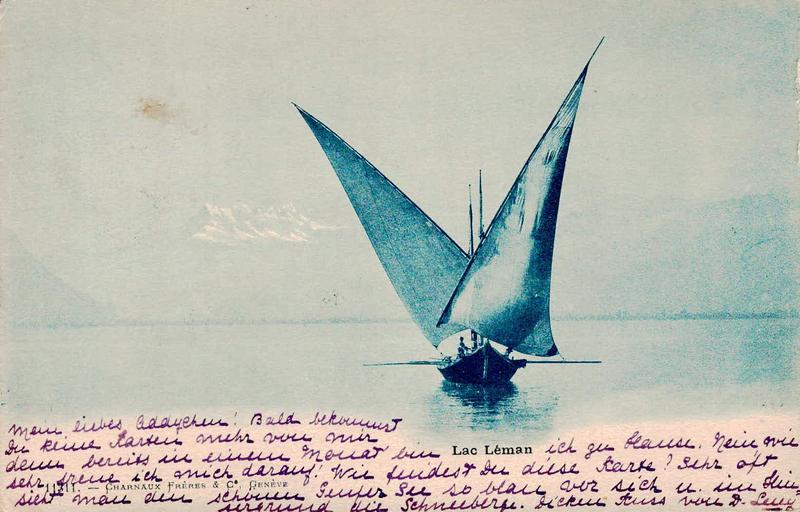 Mein liebes Addychen! Bald bekommst
Du keine Karten mehr von mir
Lac Léman
denn bereits in einem Monat bin ich zu Hause. Nein wie
sehr freue ich mich darauf! Wie findest Du diese Karte? Sehr oft
11211. — CHARNAUX FRÈRES & Cº, GENÈVE
sieht man den schönen Genfer See so blau vor sich u. im Hin-
tergrund die Schneeberge. Dicken Kuss von D. Lucy